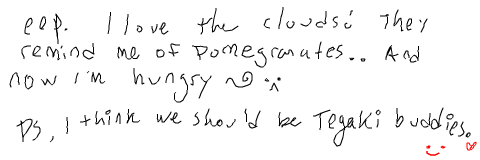 eep. I love the clouds! They
remind me of pomegranates.. And
now i'm hungry
PS, I think we should be Tegaki buddies.